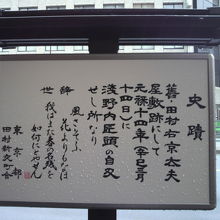 史蹟
旧・田村右京太夫
屋敷跡にして
元禄十四年(辛巳)三月
十四日に
浅野内匠頭の自刃
せし所なり
辞世
風さそふ
花よりもなほ
我はまた春の名残を
如何にとやせん
東京都
田村新交町会